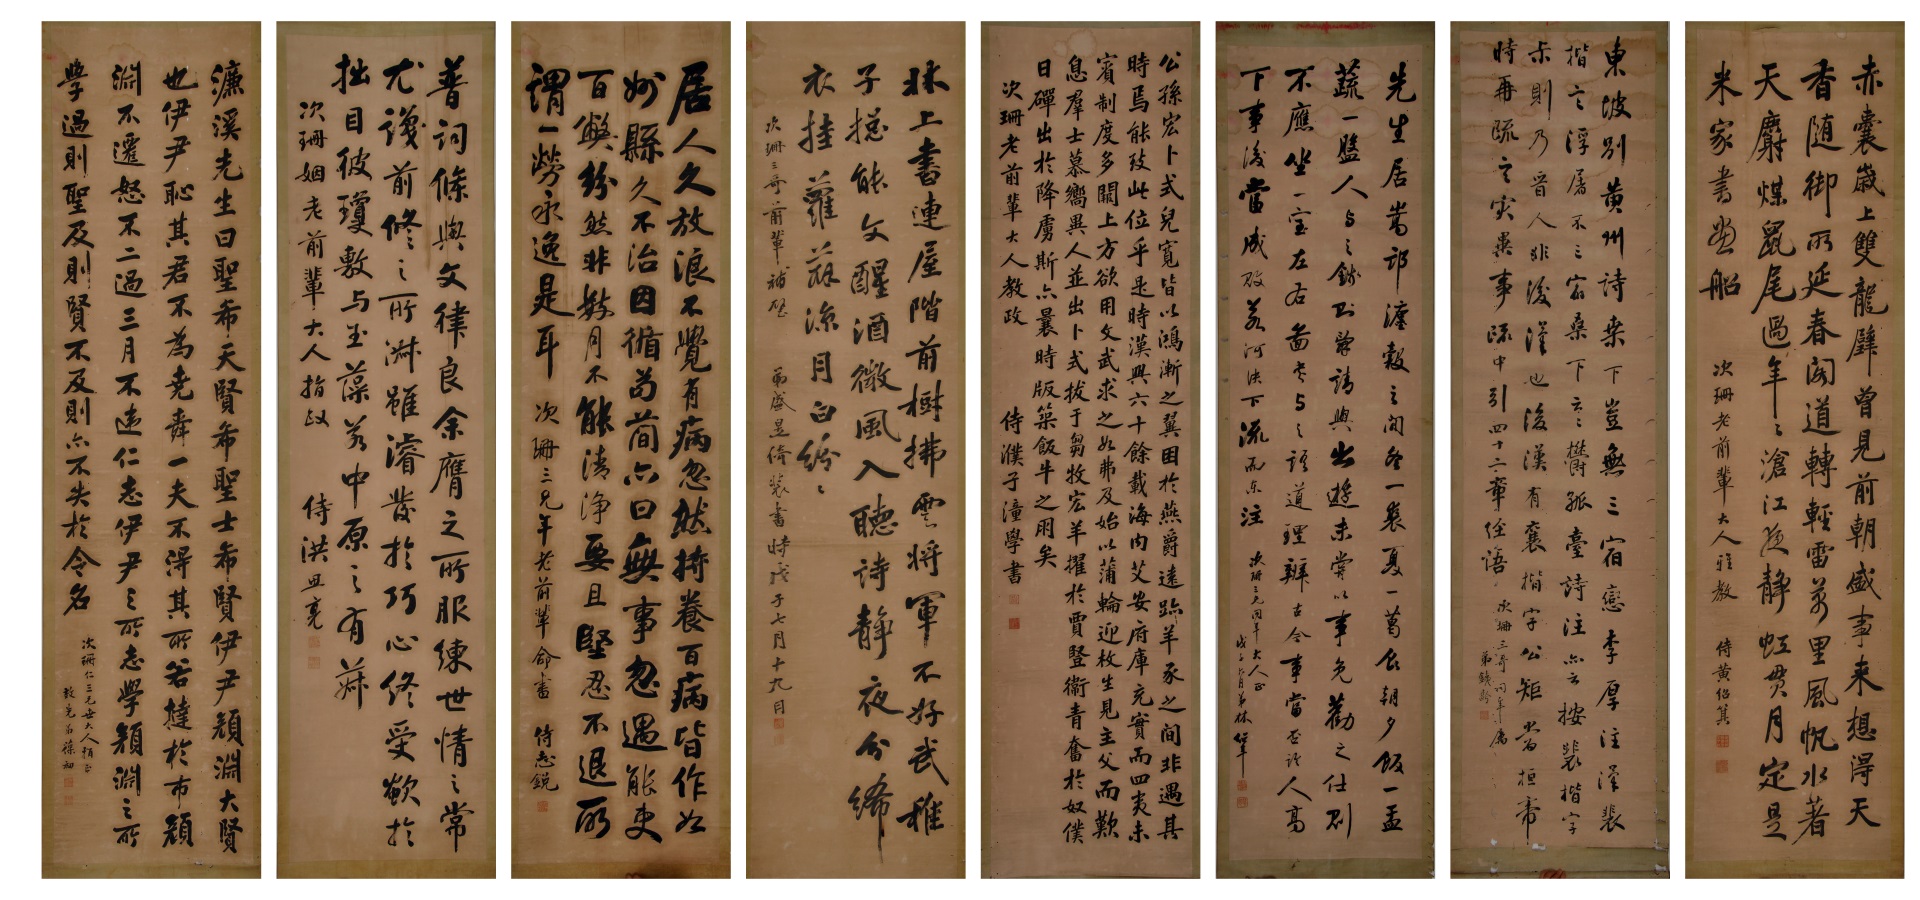 赤囊嵗上雙龍肆曾見前朝盛事来想得天
香随御所延春閣道轉輕雷萬里風帆水著
天麝煤鼠尾過年〻滄江夜靜虹貫月定是
米家書畫船
次珊老前輩大人雅教
侍黄紹箕
東坡别黄州詩桒下豈無三宿戀李厚注漢裴
楷言浮屠不三宿桑下云〻欝孤臺詩注亦云按裴楷字
未則乃晉人非後漢也後漢有襄楷字公矩當桓帝
時再疏言灾異事疏中引四十二章經語
次珊三哥同年屬
弟鐵齡
先生居嵩邙瀍穀之間冬一裘夏一葛食朝夕飯一盂
蔬一盤人与之錢則辭請與出遊未嘗以事免勸之仕則
不應坐一室左右圖書与之語道理辨古今事當否論人高
下事後當成敗若河决下流而东注
次珊三兄同年大人正
公孫宏卜式兒寬皆以鴻漸之翼困於燕爵遠跡羊豕之間非遇其
時焉能致此位乎是時漢興六十餘載海内艾安府庫充實而四夷未
賓制度多闕上方欲用文武求之如弗及始以蒲輪迎枚生見主父而歎
息羣士慕嚮異人並出卜式拔于芻牧宏羊擢於賈豎衛青奮於奴僕
日磾出於降虜斯亦曩時版築飯牛之朋矣
次珊老前輩大人教政
侍濮子潼學書
牀上書連屋階前樹拂雲将軍不好武稚
子揔能文醒酒微風入聽詩靜夜分絺
衣挂蘿薜涼月白紛〻
次珊三哥前輩補壁
弟盛昱倚裝書時戊子七月十九日
居人久放浪不覺有病忽然持養百病皆作如
州縣久不治因循苟簡亦曰無事忽遇能吏
百弊紛然非數月不能清浄要且堅忍不退所
謂一勞永逸是耳
次珊三兄年老前輩命書
侍志銳
普詞條與文律良余膺之所服練世情之常
尤識前修之所淑雖濬發於巧心終受欪於
拙目彼瓊敷与玉藻若中原之有菽
次珊姻老前輩大人指政
侍洪思亮
濂溪先生曰聖希天賢希聖士希賢伊尹顔淵大賢
也伊尹恥其君不為堯舜一夫不得其所若撻於市顔
淵不遷怒不二過三月不違仁志伊尹之所志學顔淵之所
學過則聖及則賢不及則亦不失於令名
次珊仁三兄世大人指正